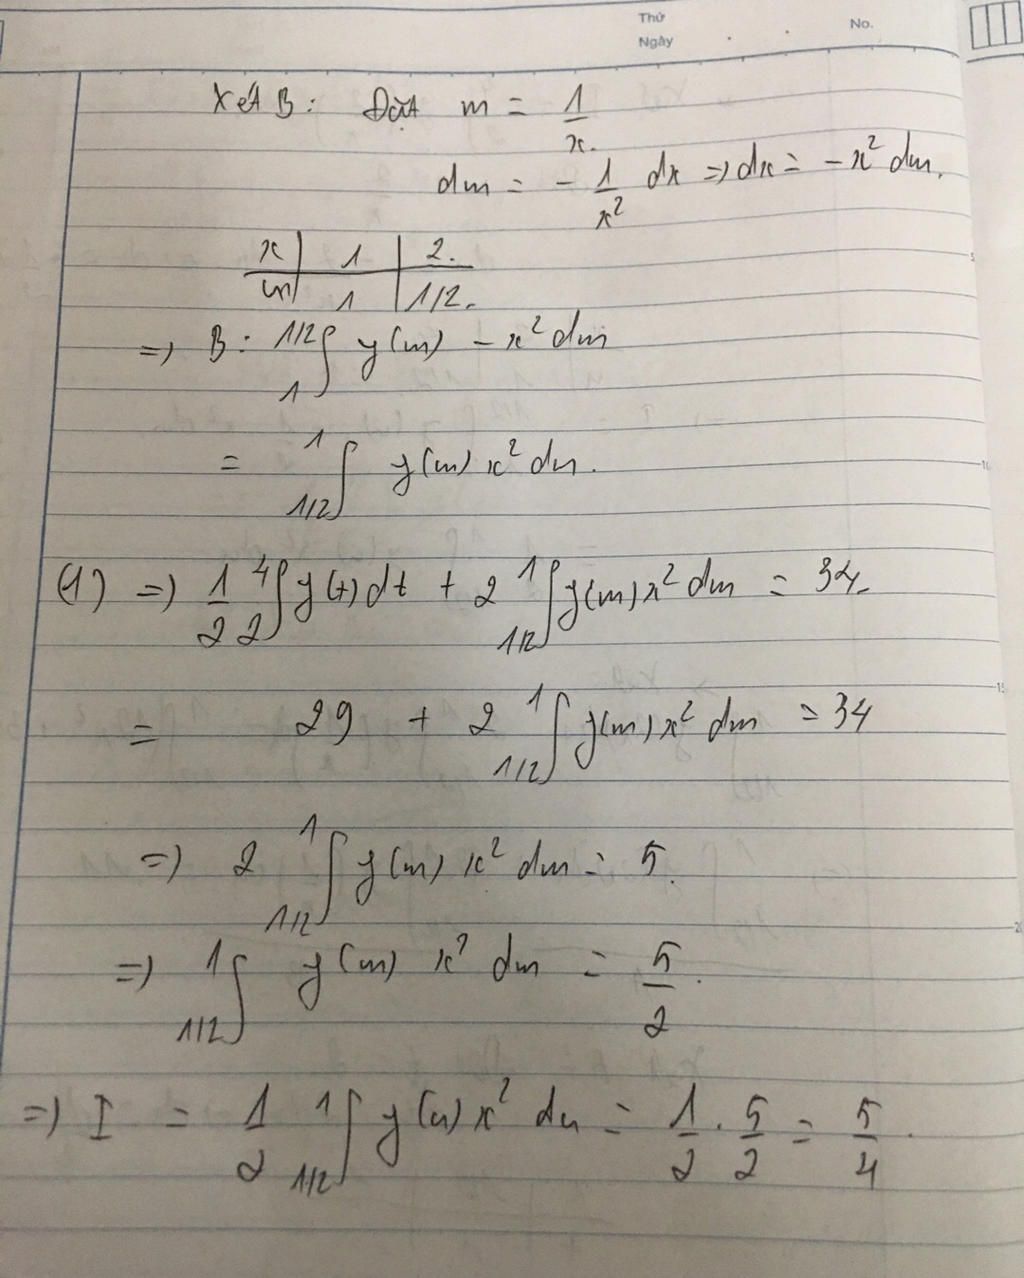 Thứ
Ngày
No.
Xét B: Đặt m = 1/x.
dm = - 1/x² dx => dx = - x² dm.
x | 1 | 2.
m | 1 | 1/2.
=> B: 1/2 ∫ 1 y(m) - x² dm
= 1 ∫ 1/2 y(m) x² dm.
(1) => 1/2 4 ∫ 2 y(t) dt + 2 1 ∫ 1/2 y(m) x² dm = 34.
= 29 + 2 1 ∫ 1/2 y(m) x² dm = 34
=> 2 1 ∫ 1/2 y(m) x² dm = 5.
=> 1 ∫ 1/2 y(m) x² dm = 5/2.
=> I = 1/2 1 ∫ 1/2 y(u) x² du = 1/2 . 5/2 = 5/4.